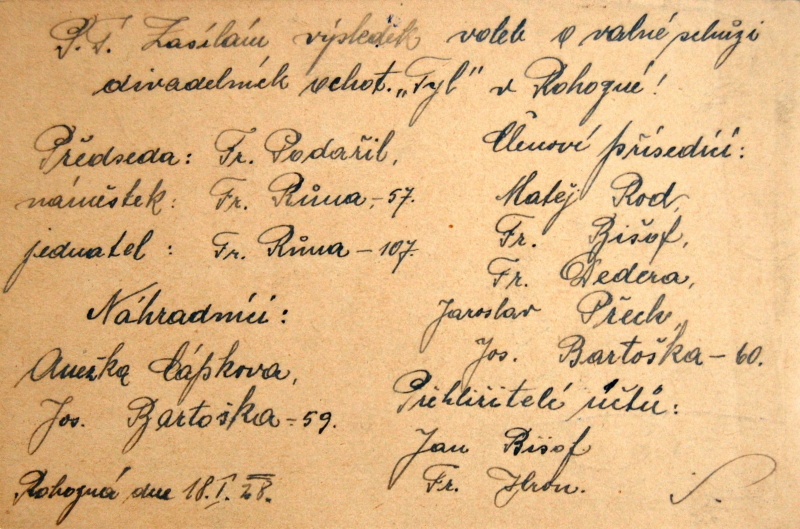 P.T. Zasílám výsledek voleb o valné schůzi
divadelních ochot. „Tyl" v Rohozné!
Předseda: Fr. Podařil,
náměstek: Fr. Růna - 57.
jednatel: Fr. Růna - 107.
Náhradníci:
Anežka Cápkova,
Jos. Bartoška - 59.
Rohozná dne 18. I. 28.
Členové přísedící:
Matěj Rod,
Fr. Bišof,
Fr. Dedera,
Jaroslav Přech,
Jos. Bartoška - 60.
Přehlížitelé účtů:
Jan Bišof
Fr. Hron.